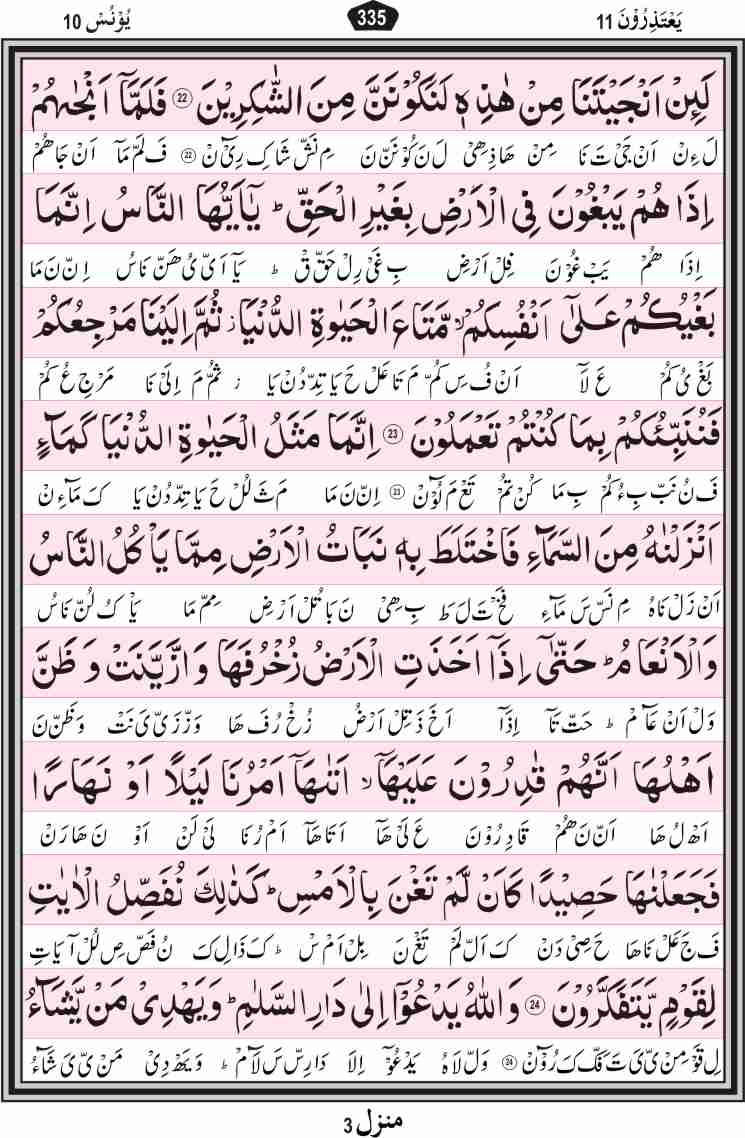 يَعْتَذِرُوْنَ 11 335 يُوْنُسْ 10
لَئِنْ اَنْجَيْتَنَا مِنْ هٰذِهٖ لَنَكُوْنَنَّ مِنَ الشّٰكِرِيْنَ ۝22 فَلَمَّاۤ اَنْجٰىهُمْ
لَ ءِنْ اَنْ جَىْ تَ نَا مِنْ هَا ذِهِىْ لَ نَ كُوْ نَنْ نَ مِ نَشْ شَا كِ رِىْٓ نْ ۝22 فَ لَمْ مَآ اَنْ جَا هُمْ
اِذَا هُمْ يَبْغُوْنَ فِى الْاَرْضِ بِغَيْرِ الْحَقِّ ؕ يٰۤاَيُّهَا النَّاسُ اِنَّمَا
اِذَا هُمْ يَبْ غُوْ نَ فِلْ اَرْضِ بِ غَىْ رِلْ حَقْ قْ ؕ يَآ اَىْ ىُ هَنْ نَاسُ اِنْ نَ مَا
بَغْيُكُمْ عَلٰۤى اَنْفُسِكُمْ ۙ مَّتَاعَ الْحَيٰوةِ الدُّنْيَا ؗ ثُمَّ اِلَيْنَا مَرْجِعُكُمْ
بَغْ ىُ كُمْ عَ لَآ اَنْ فُ سِ كُمْ مَ تَا عَلْ حَ يَا تِدْ دُنْ يَا ؗ ثُمْ مَ اِلَىْ نَا مَرْ جِ عُ كُمْ
فَنُنَبِّئُكُمْ بِمَا كُنْتُمْ تَعْمَلُوْنَ ۝23 اِنَّمَا مَثَلُ الْحَيٰوةِ الدُّنْيَا كَمَآءٍ
فَ نُ نَبْ بِ ءُ كُمْ بِ مَا كُنْ تُمْ تَعْ مَ لُوْٓنْ ۝23 اِنْ نَ مَا مَ ثَ لُلْ حَ يَا تِدْ دُنْ يَا كَ مَآءِ نْ
اَنْزَلْنٰهُ مِنَ السَّمَآءِ فَاخْتَلَطَ بِهٖ نَبَاتُ الْاَرْضِ مِمَّا يَاْكُلُ النَّاسُ
اَنْ زَلْ نَاهُ مِ نَسْ سَ مَآءِ فَخْ تَ لَ طَ بِ هِىْ نَ بَا تُلْ اَرْضِ مِمْ مَا يَاْ كُ لُنْ نَاسُ
وَالْاَنْعَامُ ؕ حَتّٰۤى اِذَاۤ اَخَذَتِ الْاَرْضُ زُخْرُفَهَا وَازَّيَّنَتْ وَظَنَّ
وَلْ اَنْ عَآ مْ ؕ حَتْ تَآ اِذَآ اَخَ ذَ تِلْ اَرْضُ زُخْ رُ فَ هَا وَزْ زَىْ ىَ نَتْ وَ ظَنْ نَ
اَهْلُهَاۤ اَنَّهُمْ قٰدِرُوْنَ عَلَيْهَاۤ ۙ اَتٰىهَاۤ اَمْرُنَا لَيْلًا اَوْ نَهَارًا
اَهْ لُ هَا اَنْ نَ هُمْ قَا دِرُوْنَ عَ لَىْ هَآ اَتَا هَآ اَمْ رُ نَا لَىْ لَنْ اَوْ نَ هَا رَنْ
فَجَعَلْنٰهَا حَصِيْدًا كَاَنْ لَّمْ تَغْنَ بِالْاَمْسِ ؕ كَذٰلِكَ نُفَصِّلُ الْاٰيٰتِ
فَ جَ عَلْ نَا هَا حَ صِىْ دَنْ كَ اَلْ لَمْ تَغْ نَ بِلْ اَمْ سْ ؕ كَ ذَا لِ كَ نُ فَصْ صِ لُلْ آ يَاتِ
لِقَوْمٍ يَّتَفَكَّرُوْنَ ۝24 وَاللّٰهُ يَدْعُوْۤا اِلٰى دَارِ السَّلٰمِ ؕ وَيَهْدِىْ مَنْ يَّشَآءُ
لِ قَوْ مِنْ ىْ ىَ تَ فَكْ كَ رُوْٓنْ ۝24 وَلْ لَا هُ يَدْ عُوْٓ اِلَا دَا رِسْ سَ لَآ مْ ؕ وَ يَهْ دِىْ مَنْ ىْ ىَ شَآءُ
منزل 3